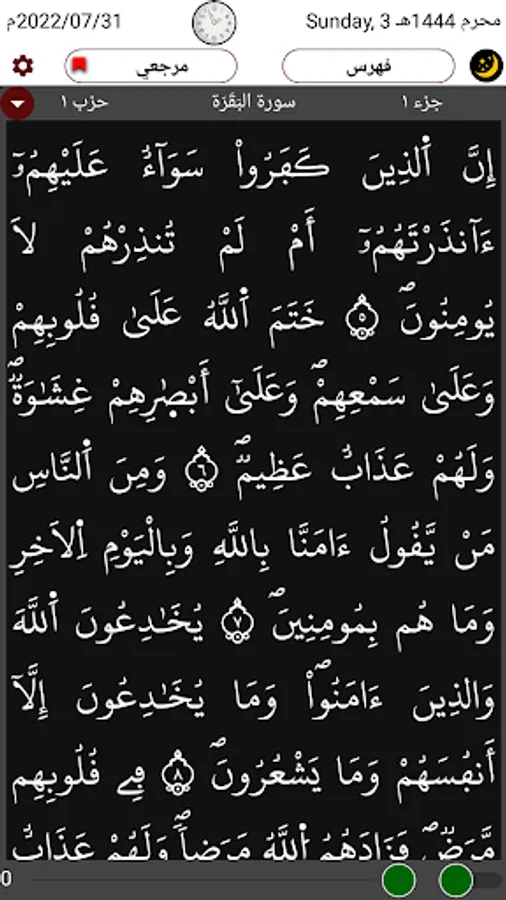 2022/07/31م Sunday, 3 محرم 1444هـ
مرجعي فهرس
جزء ١ سورة البَقَرَة حزب ١
إِنَّ اَ۬لذِينَ كَفَرُواْ سَوَآءٌ عَلَيْهِمُۥٓ
ءَآنذَرْتَهُمُۥٓ أَمْ لَمْ تُنذِرْهُمْ لَا
يُومِنُونَۖ ٥ خَتَمَ اَ۬للَّهُ عَلَىٰ قُلُوبِهِمْ
وَعَلَىٰ سَمْعِهِمْۖ وَعَلَىٰٓ أَبْصٰ۪رِهِمْ غِشَٰوَةٞۖ
وَلَهُمْ عَذَابٌ عَظِيمٞۖ ٦ وَمِنَ اَ۬لنَّاسِ
مَنْ يَّقُولُ ءَامَنَّا بِاللَّهِ وَبِالْيَوْمِ اِ۬لَاخِرِ
وَمَا هُم بِمُومِنِينَۖ ٧ يُخَٰدِعُونَ اَ۬للَّهَ
وَالذِينَ ءَامَنُواْۖ وَمَا يُخَٰدِعُونَ إِلَّآ
أَنفُسَهُمْ وَمَا يَشْعُرُونَۖ ٨ فِے قُلُوبِهِم
مَّرَضٞۖ فَزَادَهُمُ اُ۬للَّهُ مَرَضاٗۖ وَلَهُمْ عَذَابٌ
0